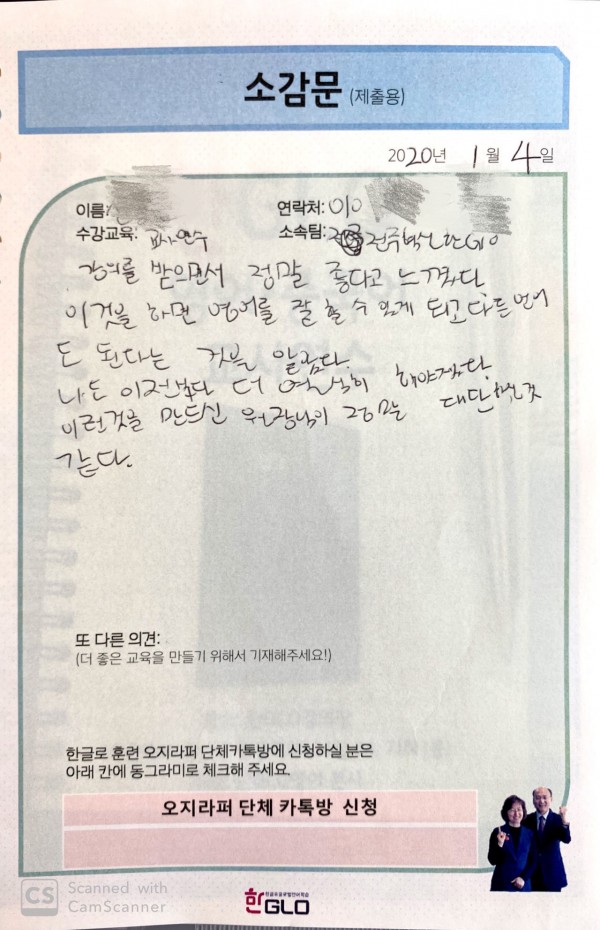 소감문 (제출용)
2020년 1월 4일
이름:
연락처: 010
수강교육: 교사연수
소속팀: 전주
강의를 받으면서 정말 좋다고 느꼈다
이것을 하면 영어를 잘 할 수 있게 되고 다른 언어
도 된다는 것을 알았다.
나도 이전보다 더 열심히 해야겠다.
이런것을 만드신 원장님이 정말 대단하신 것
같다.
또 다른 의견:
(더 좋은 교육을 만들기 위해서 기재해주세요!)
한글로 훈련 오지라퍼 단체카톡방에 신청하실 분은
아래 칸에 동그라미로 체크해 주세요.
오지라퍼 단체 카톡방 신청
CS Scanned with
CamScanner
한GLO